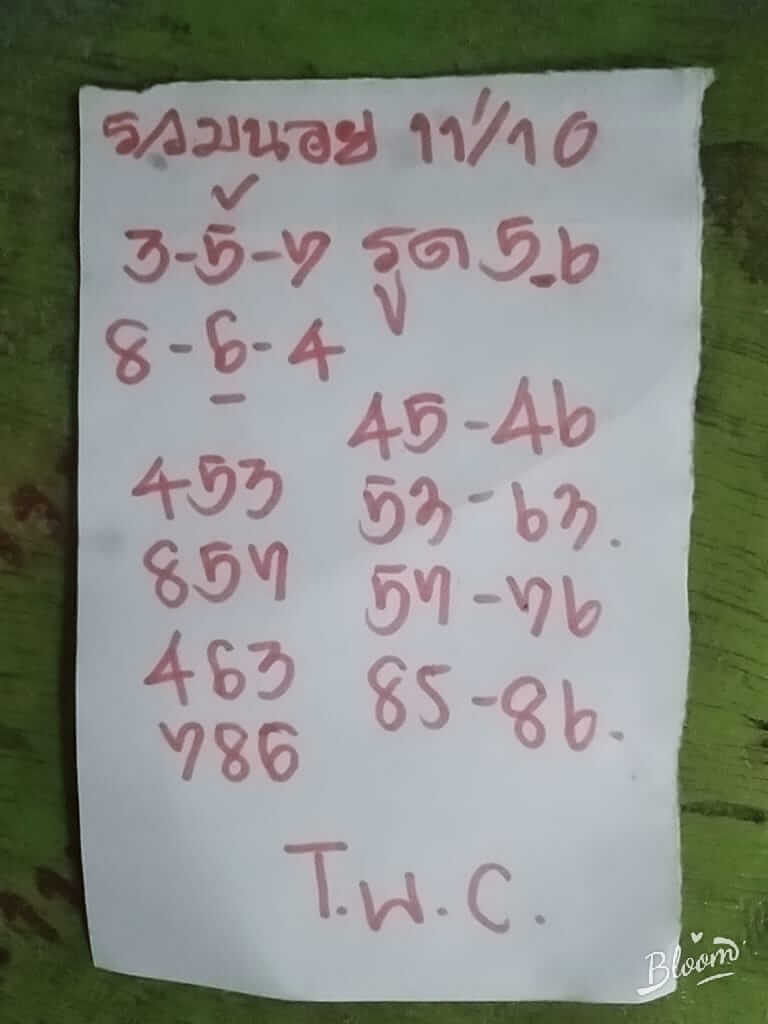 รวมนอย 11/10
3-5-7 รูด 5-6
8-6-4
45-46
453
53-63.
857
57-76
463
85-86.
786
T.พ.C.
Bloom